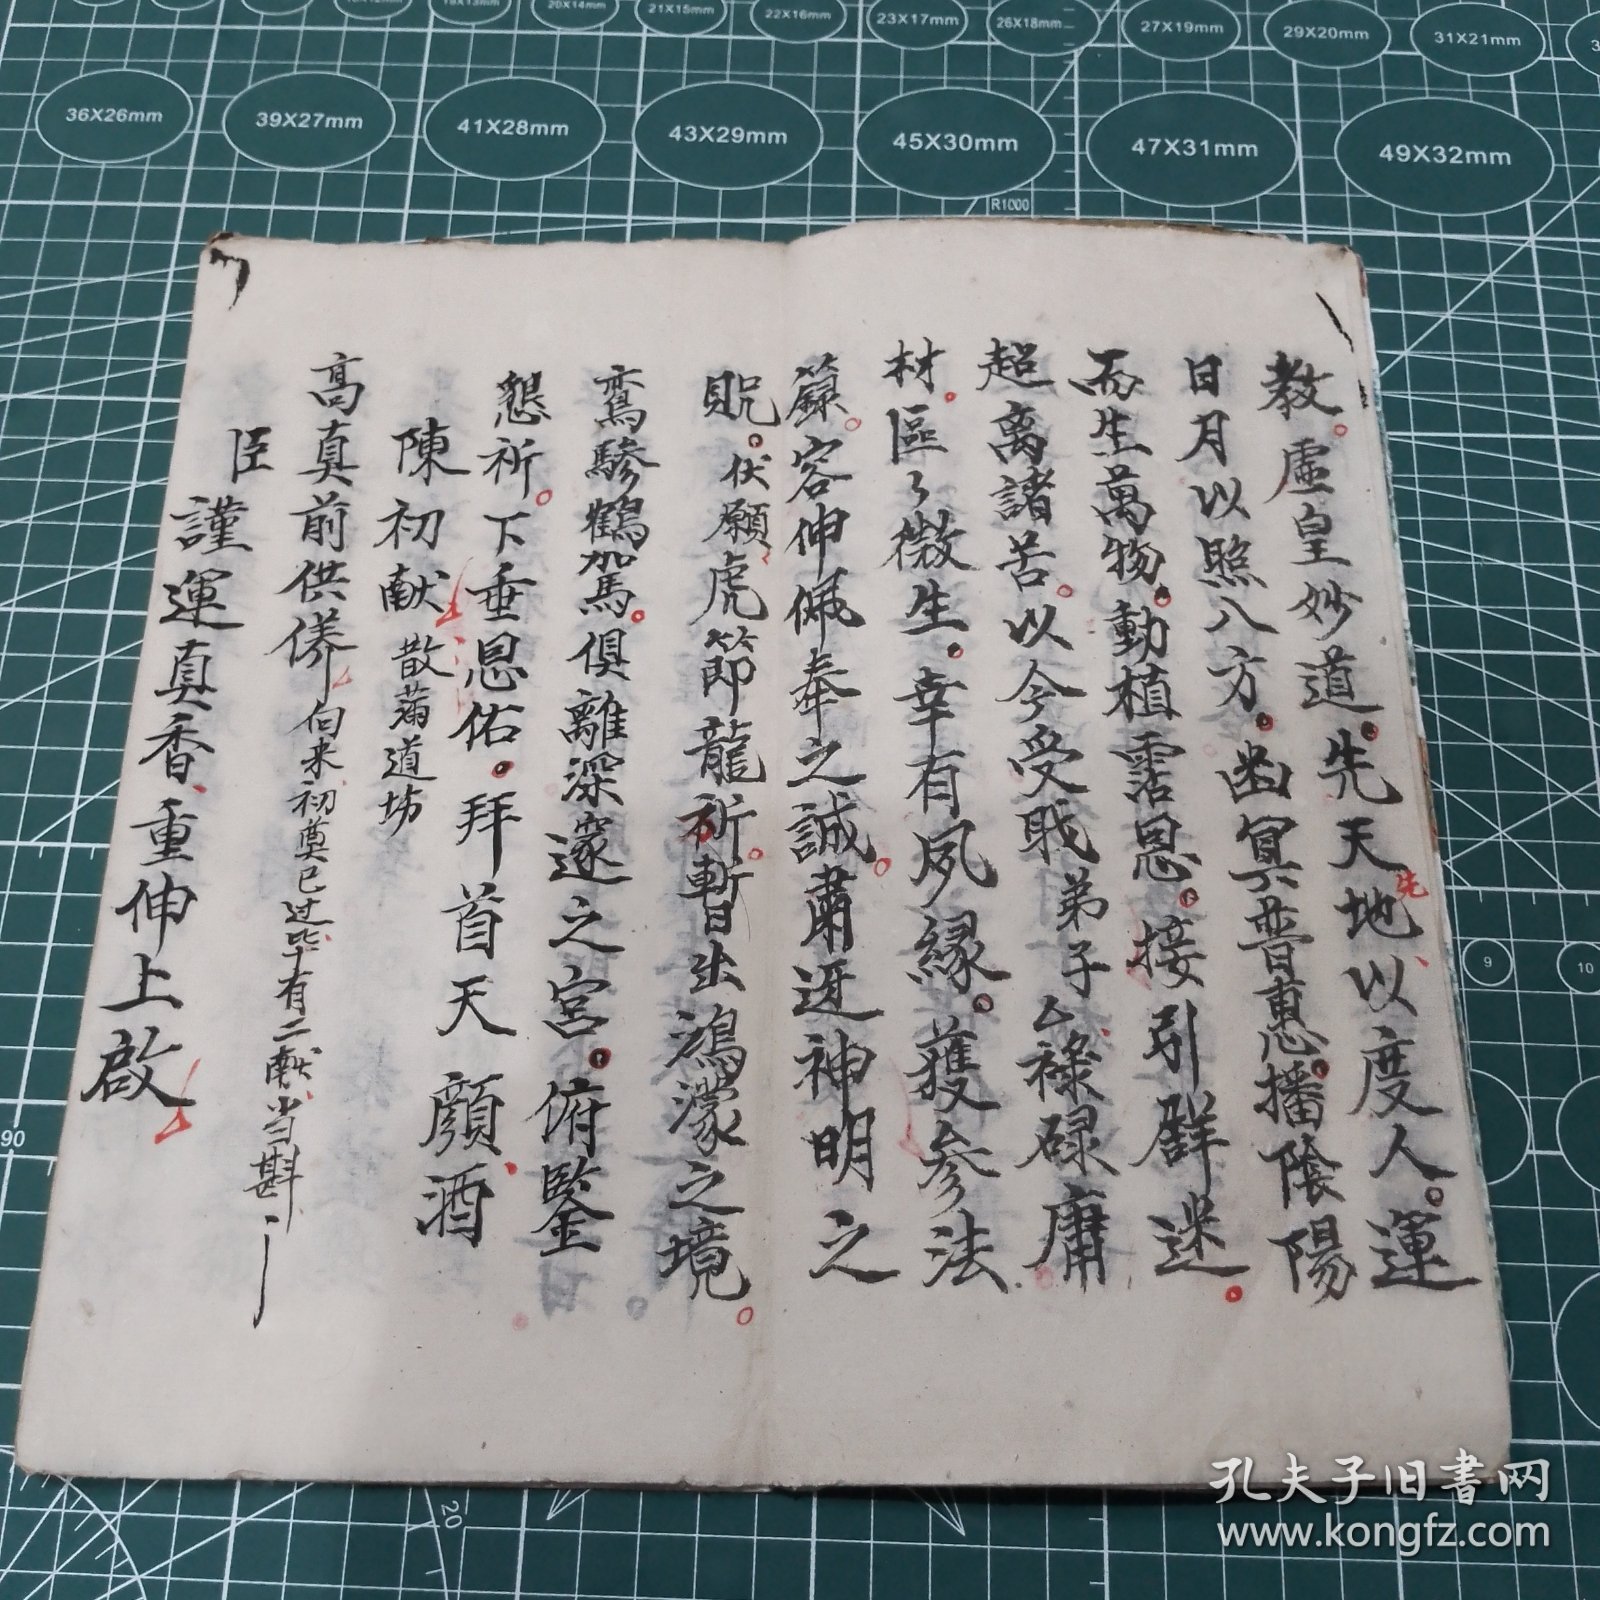 教。虛皇妙道。先天先地、以度人。運
日月以照八方。幽冥普惠。播陰陽
而生萬物。動植霑恩。接引群迷。
超离諸苦。以今受戝弟子厶祿碌庸
材。區〻微生。幸有夙緣。獲參法
籙。容伸佩奉之誠。肅迓神明之
貺。伏願虎節龍祈。暫出鴻濛之境。
鸞驂鶴駕。俱離深邃之宮。俯鑒
懇祈。下垂恩佑。拜首天顏、酒
陳初献 散蒲道坊
高真前供俻 向来初奠已过毕有二献当斟
臣謹運真香、重伸上啟
36X26mm
39X27mm
41X28mm
43X29mm
45X30mm
47X31mm
49X32mm
20X14mm
21X15mm
22X16mm
23X17mm
26X18mm
27X19mm
29X20mm
31X21mm
R1000
9
10
90
20
孔夫子旧書网
www.kongfz.com